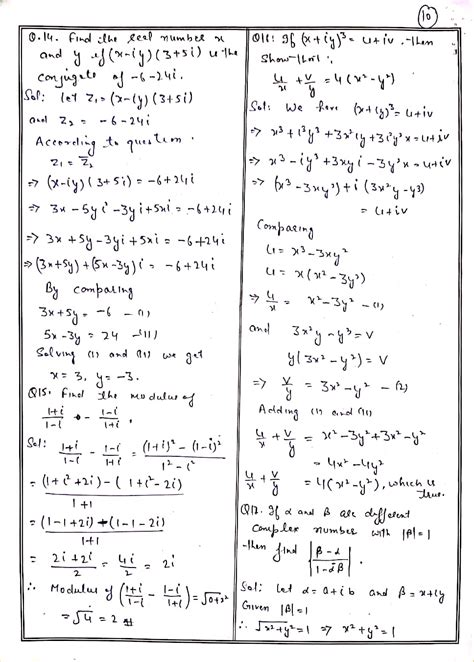 (10)
Q.14. Find the real number x
and y if (x-iy)(3+5i) is the
conjugate of -6-24i.
Sol: let Z₁ = (x-iy)(3+5i)
and Z₂ = -6-24i
According to question.
Z₁ = Z̄₂
=> (x-iy)(3+5i) = -6+24i
=> 3x-5yi²-3yi+5xi = -6+24i
=> 3x+5y-3yi+5xi = -6+24i
=> (3x+5y)+(5x-3y)i = -6+24i
By comparing
3x+5y = -6 -(i)
5x-3y = 24 -(ii)
Solving (i) and (ii) we get
x=3, y=-3.
Q15. Find the modulus of
1+i/1-i - 1-i/1+i
Sol: 1+i/1-i - 1-i/1+i = (1+i)²-(1-i)²/1²-i²
= (1+i²+2i)-(1+i²-2i)/1+1
= (1-1+2i)-(1-1-2i)/1+1
= 2i+2i/2 = 4i/2 = 2i
∴ Modulus of (1+i/1-i - 1-i/1+i) = √0+2²
= √4 = 2
Q16: If (x+iy)³ = u+iv, then
show that:
u/x + v/y = 4(x²-y²)
Sol: We have (x+iy)³ = u+iv
=> x³+i³y³+3x²iy+3i²y²x = u+iv
=> x³-iy³+3xyi-3y²x = u+iv
=> (x³-3xy²)+i(3x²y-y³)
= u+iv
Comparing
u = x³-3xy²
u = x(x²-3y²)
=> u/x = x²-3y² -(1)
and 3x²y-y³ = v
y(3x²-y²) = v
=> v/y = 3x²-y² -(2)
Adding (i) and (ii)
u/x + v/y = x²-3y²+3x²-y²
= 4x²-4y²
u/x + v/y = 4(x²-y²), which is
true.
Q17. If α and β are different
complex number with |β|=1
then find |β-α/1-ᾱβ|
Sol: let α = a+ib and β = x+iy
Given |β|=1
∴ √x²+y² = 1 => x²+y² = 1